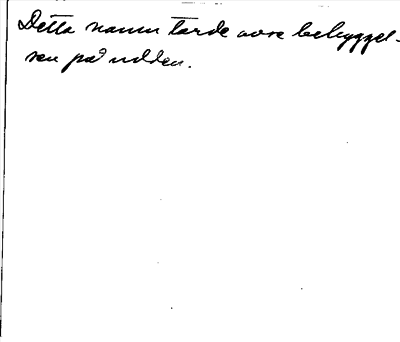 Detta namn torde avse bebyggel-
sen på udden.